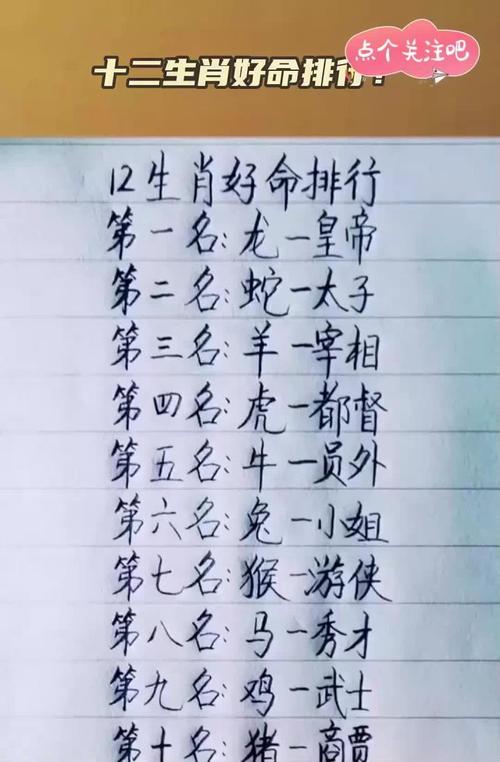 点个关注吧
十二生肖好命排行
12生肖好命排行
第一名:龙一皇帝
第二名:蛇一太子
第三名:羊一宰相
第四名:虎一都督
第五名:牛一员外
第六名:兔一小姐
第七名:猴一游侠
第八名:马一秀才
第九名:鸡一武士
第十名:猪一商贾